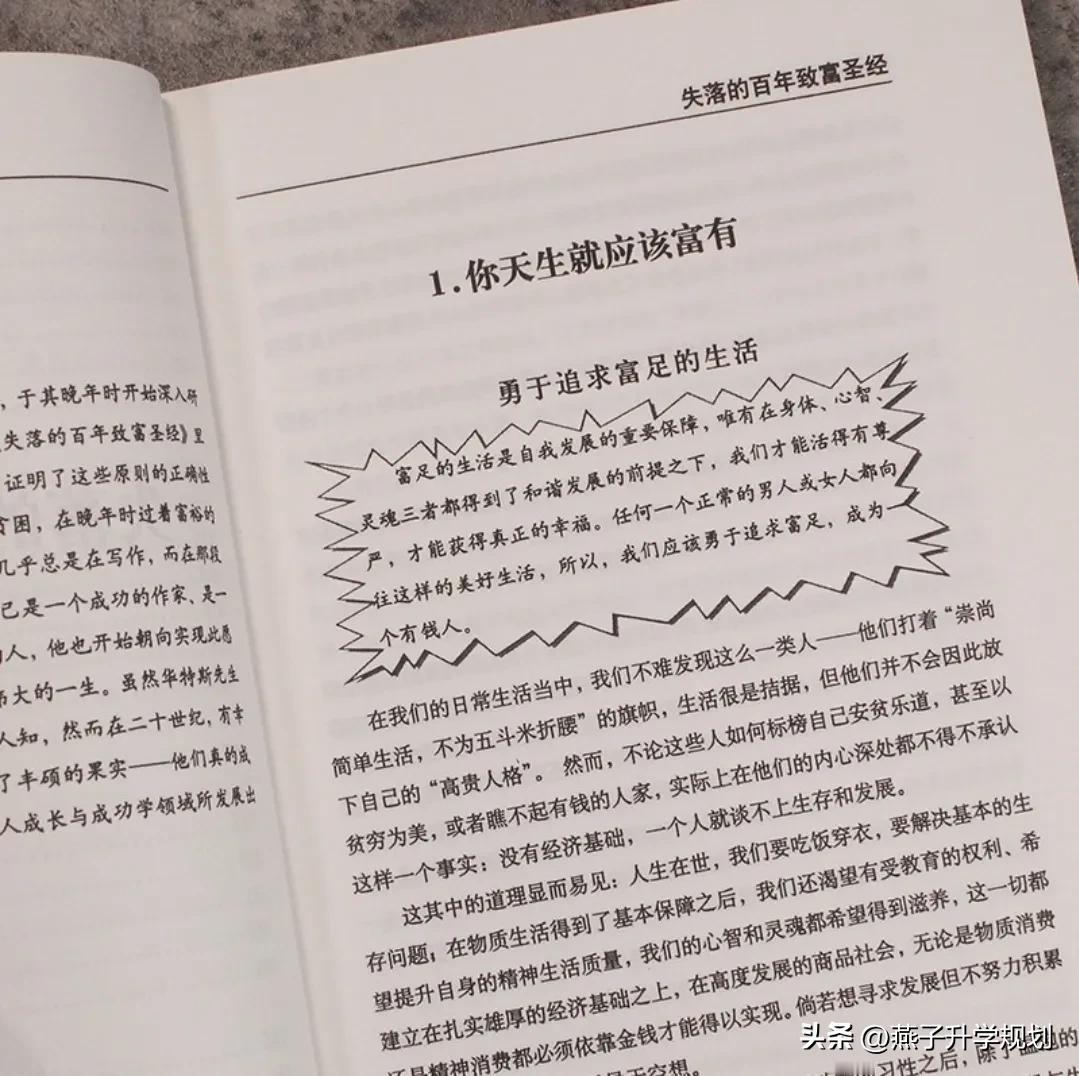 ，于其晚年时开始深入研
失落的百年致富圣经》里
证明了这些原则的正确性
贫困，在晚年时过着富裕的
几乎总是在写作，而在那段
已是一个成功的作家、是一
人，他也开始朝向实现此愿
伟大的一生。虽然华特斯先生
人知，然而在二十世纪，有幸
了丰硕的果实——他们真的成
人成长与成功学领域所发展出
失落的百年致富圣经
1.你天生就应该富有
勇于追求富足的生活
富足的生活是自我发展的重要保障，唯有在身体、心智、
灵魂三者都得到了和谐发展的前提之下，我们才能活得有尊
严，才能获得真正的幸福。任何一个正常的男人或女人都向
往这样的美好生活，所以，我们应该勇于追求富足，成为一
个有钱人。
在我们的日常生活当中，我们不难发现这么一类人——他们打着“崇尚
简单生活，不为五斗米折腰”的旗帜，生活很是拮据，但他们并不会因此放
下自己的“高贵人格”。然而，不论这些人如何标榜自己安贫乐道，甚至以
贫穷为美，或者瞧不起有钱的人家，实际上在他们的内心深处都不得不承认
这样一个事实：没有经济基础，一个人就谈不上生存和发展。
这其中的道理显而易见：人生在世，我们要吃饭穿衣，要解决基本的生
存问题；在物质生活得到了基本保障之后，我们还渴望有受教育的权利、希
望提升自身的精神生活质量，我们的心智和灵魂都希望得到滋养，这一切都
建立在扎实雄厚的经济基础之上，在高度发展的商品社会，无论是物质消费
还是精神消费都必须依靠金钱才能得以实现。倘若想寻求发展但不努力积累
习性之后，除了
头条 @燕子升学规划